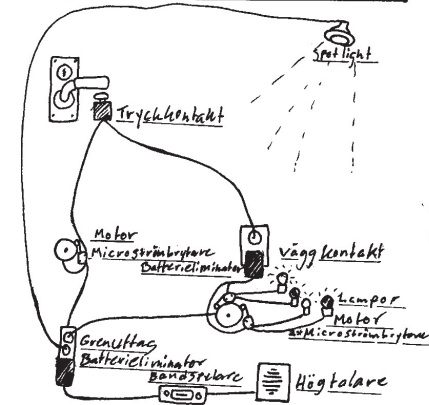 Spotlight
Tryckkontakt
Motor
Microströmbrytare
Batterieliminator
Väggkontakt
Lampor
Motor
2xMicroströmbrytare
Grenuttag
Batterieliminator
Bandspelare
Högtalare